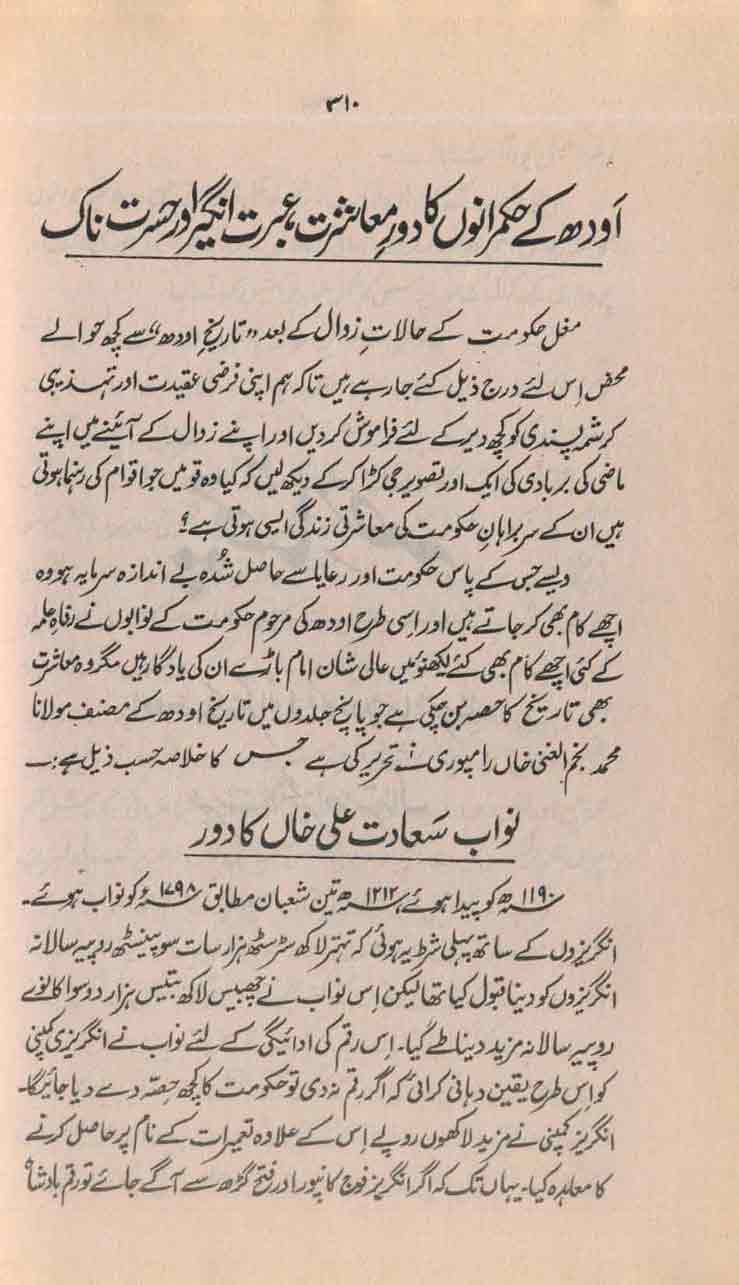 ۳۱۰
اَودھ کے حکمرانوں کا دورِ معاشرت، عبرت انگیز اور حسرت ناک
مغل حکومت کے حالاتِ زوال کے بعد "تاریخِ اودھ" سے کچھ حوالے
محض اِس لئے درج ذیل کئے جارہے ہیں تاکہ ہم اپنی فرضی عقیدت اور تہذیبی
کرشمہ پسندی کو کچھ دیر کے لئے فراموش کردیں اور اپنے زوال کے آئینے میں اپنے
ماضی کی بربادی کی ایک اور تصویر جی کڑا کرکے دیکھ لیں کہ کیا وہ قومیں جو اقوام کی رہنما ہوتی
ہیں ان کے سربراہانِ حکومت کی معاشرتی زندگی ایسی ہوتی ہے؟
ویسے جس کے پاس حکومت اور رعایا سے حاصل شُدہ بے اندازہ سرمایہ ہو وہ
اچھے کام بھی کر جاتے ہیں اور اِسی طرح اودھ کی مرحوم حکومت کے نوابوں نے رفاہِ عامہ
کے کئی اچھے کام بھی کئے لکھنؤ میں عالی شان امام باڑے ان کی یادگار ہیں مگر وہ معاشرت
بھی تاریخ کا حصہ بن چکی ہے جو پانچ جلدوں میں تاریخ اودھ کے مصنف مولانا
محمد نجم الغنی خاں رامپوری نے تحریر کی ہے جس کا خلاصہ حسب ذیل ہے:۔
نواب سَعادت علی خاں کا دور
۱۱۹۰ھ کو پیدا ہوئے، ۱۲۱۲ھ تین شعبان مطابق ۱۷۹۸ء کو نواب ہوئے۔
انگریزوں کے ساتھ پہلی شرط یہ ہوئی کہ تہتر لاکھ سڑسٹھ ہزار سات سو پینسٹھ روپیہ سالانہ
انگریزوں کو دینا قبول کیا تھا لیکن اِس نواب نے چھبیس لاکھ بتیس ہزار دو سو اکانوے
روپیہ سالانہ مزید دینا طے گیا۔ اِس رقم کی ادائیگی کے لئے نواب نے انگریزی کمپنی
کو اِس طرح یقین دہانی کرائی کہ اگر رقم نہ دی تو حکومت کا کچھ حِصّہ دے دیا جائیگا۔
انگریز کمپنی نے مزید لاکھوں روپے اِس کے علاوہ تعمیرات کے نام پر حاصل کرنے
کا معاہدہ کیا۔ یہاں تک کہ اگر انگریز فوج کانپور اور فتح گڑھ سے آگے جائے تو رقم بادشاہ